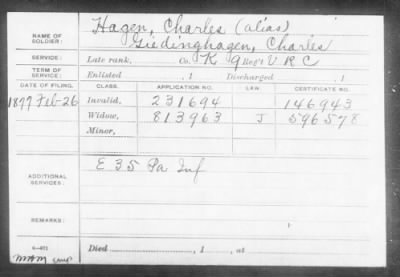 NAME OF SOLDIER: Hagen, Charles (alias)
Giedinghagen, Charles
SERVICE: Late rank, Co. K 9 Reg't V R C
TERM OF SERVICE: Enlisted , 1 Discharged , 1
DATE OF FILING. CLASS. APPLICATION NO. LAW. CERTIFICATE NO.
1877 Feb-26 Invalid, 231694 146943
Widow, 813963 J 596578
Minor,
ADDITIONAL SERVICES: E 35 Pa Inf
REMARKS:
Died , 1 , at